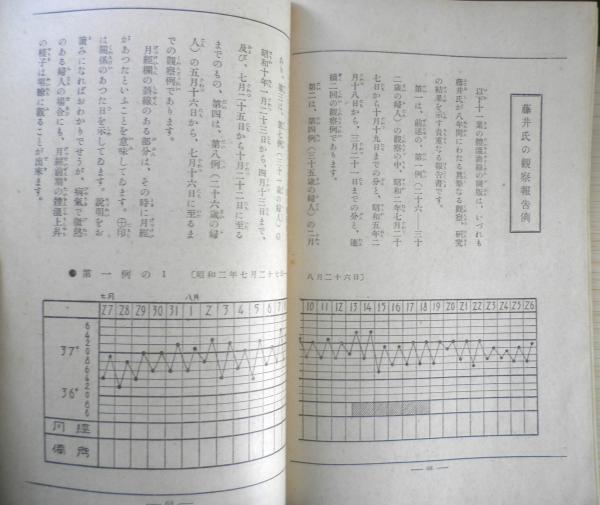 藤井氏の観察報告例
以下十一葉の體溫曲線の圖表は、いづれも
藤井氏が八年間にわたる眞摯なる観察、研究
の結果を示す貴重なる報告書です。
第一は、前述の、第一例(二十六―三十
二歳の婦人)の観察の中、昭和二年七月二十
七日から十月十九日までの分と、昭和五年二
月十八日から、三月二十一日までの分と、連
續二回の観察例であります。
第二は、第四例(三十五歳の婦人)の二月
昭和十年一月二十三日から、四月十三日まで、
及び、七月二十五日から十月二十二日に至る
までのもの、第四は、第八例(二十六歳の婦
人)の五月十六日から、七月十六日に至るま
での観察例であります。
月經欄の斜線のある部分は、その時に月經
があつたといふことを意味してゐます。㊉印
は關係のあつた日を示してゐます。說明をお
讀みになればおわかりでせうが、病氣で微熱
のある婦人の場合にも、月經前期の體溫上昇
の樣子は明瞭に觀ることが出來ます。
●第一例の1 〔昭和二年七月二十七
八月二十六日〕
七月 八月
27 28 29 30 31 1 2 3 4 5 6 7
10 11 12 13 14 15 16 17 18 19 20 21 22 23 24 25 26
6
4
2
37°
8
6
4
2
36°
8
6
月經
備考